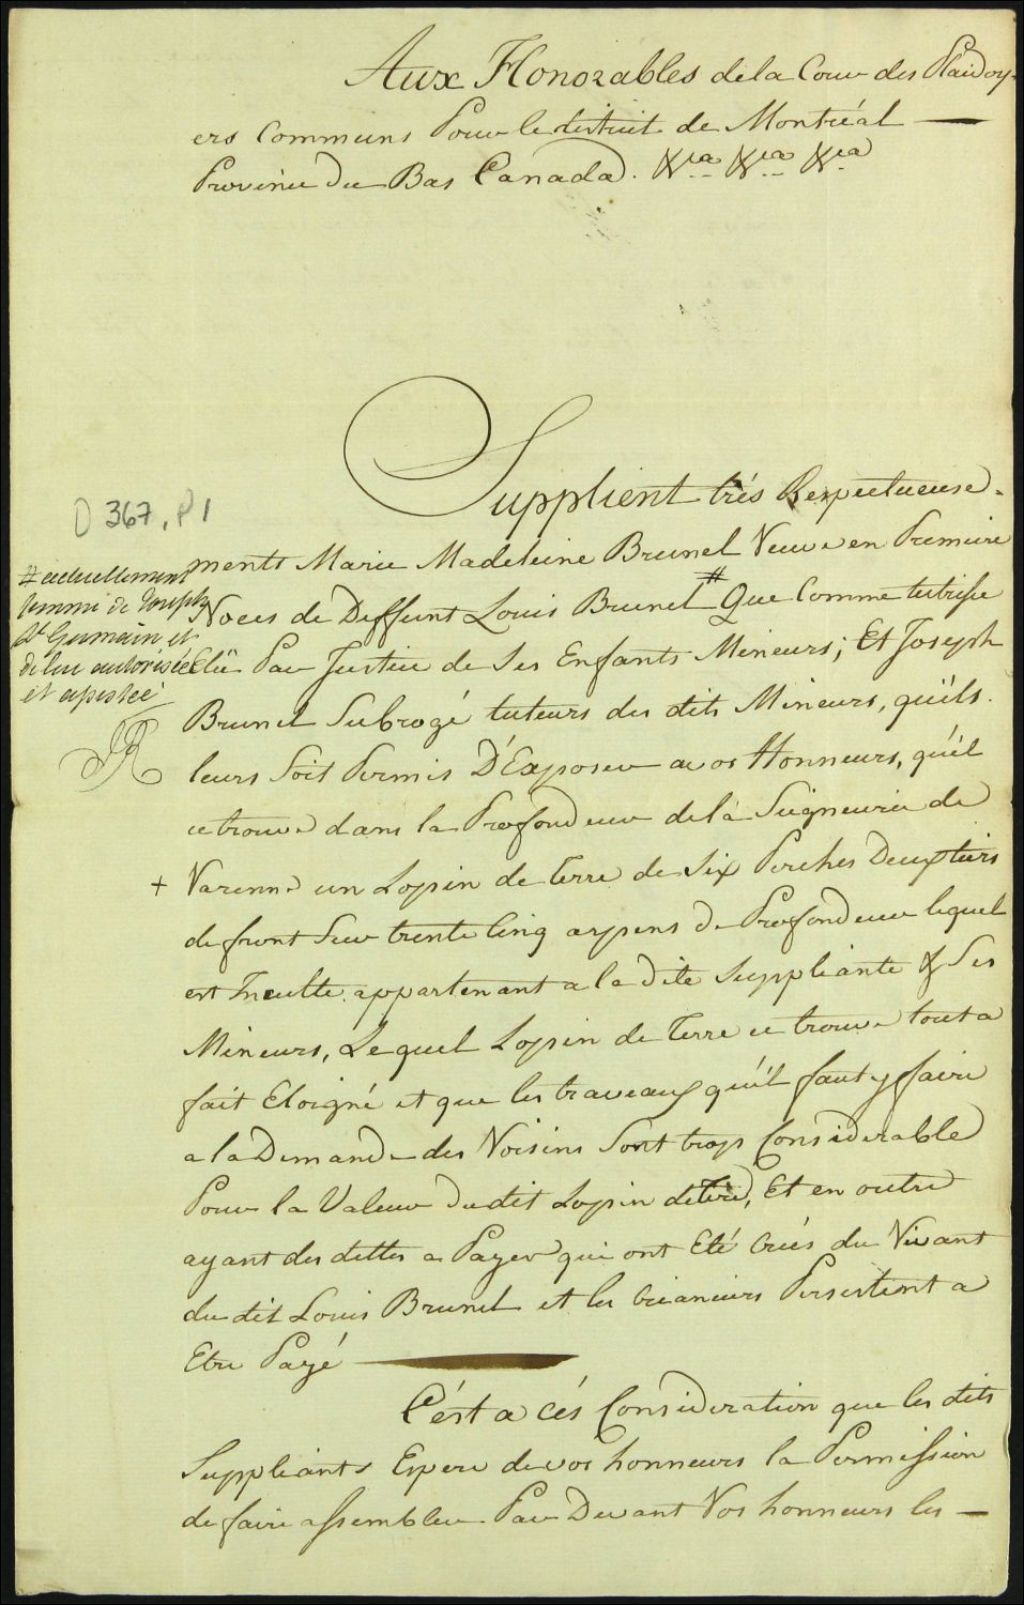 Aux Honorables de la Cour des Plaidoy-
ers Communs Pour le district de Montréal —
Province du Bas Canada. &ca &ca &ca
Supplient trés Respectueuse-
D 367, P1
ments Marie Madeleine Brunel Veuve en Premiere
Noces de Deffunt Louis Brunel # Que Comme tutrisse
# actuellement
femme de Joseph
St Germain et
de lui autorisée
et
Elü Par Justice de Ses Enfants Mineurs; Et Joseph
Brunel Subrogé tuteurs des dits Mineurs, quïls
leurs Soit Permis D'Exposer a vos Honneurs, qu'il
ce trouve dans la Profondeur de la Seigneurie de
+ Varenne un Lopin de terre de Six Perches Deux tiers
de front Sur trente Cinq arpens de Profondeur lequel
est Inculte appartenant a la dite Suppliante & Ses
Mineurs, Lequel Lopin de Terre ce trouve tout a
fait Eloigné et que les traveaux qu'il faut y faire
a la Demande des Voisins Sont trop Considerable
Pour la Valeur du dit Lopin de Terre, Et en outre
ayant des dettes a Payer qui ont Eté Créés du Vivant
du dit Louis Brunel et les Créanciers Persistent a
Etre Payé —
C'ést a cés Consideration que les dits
Suppliants Espere de vos honneurs la Permission
de faire assembler Par Devant Vos honneurs les —